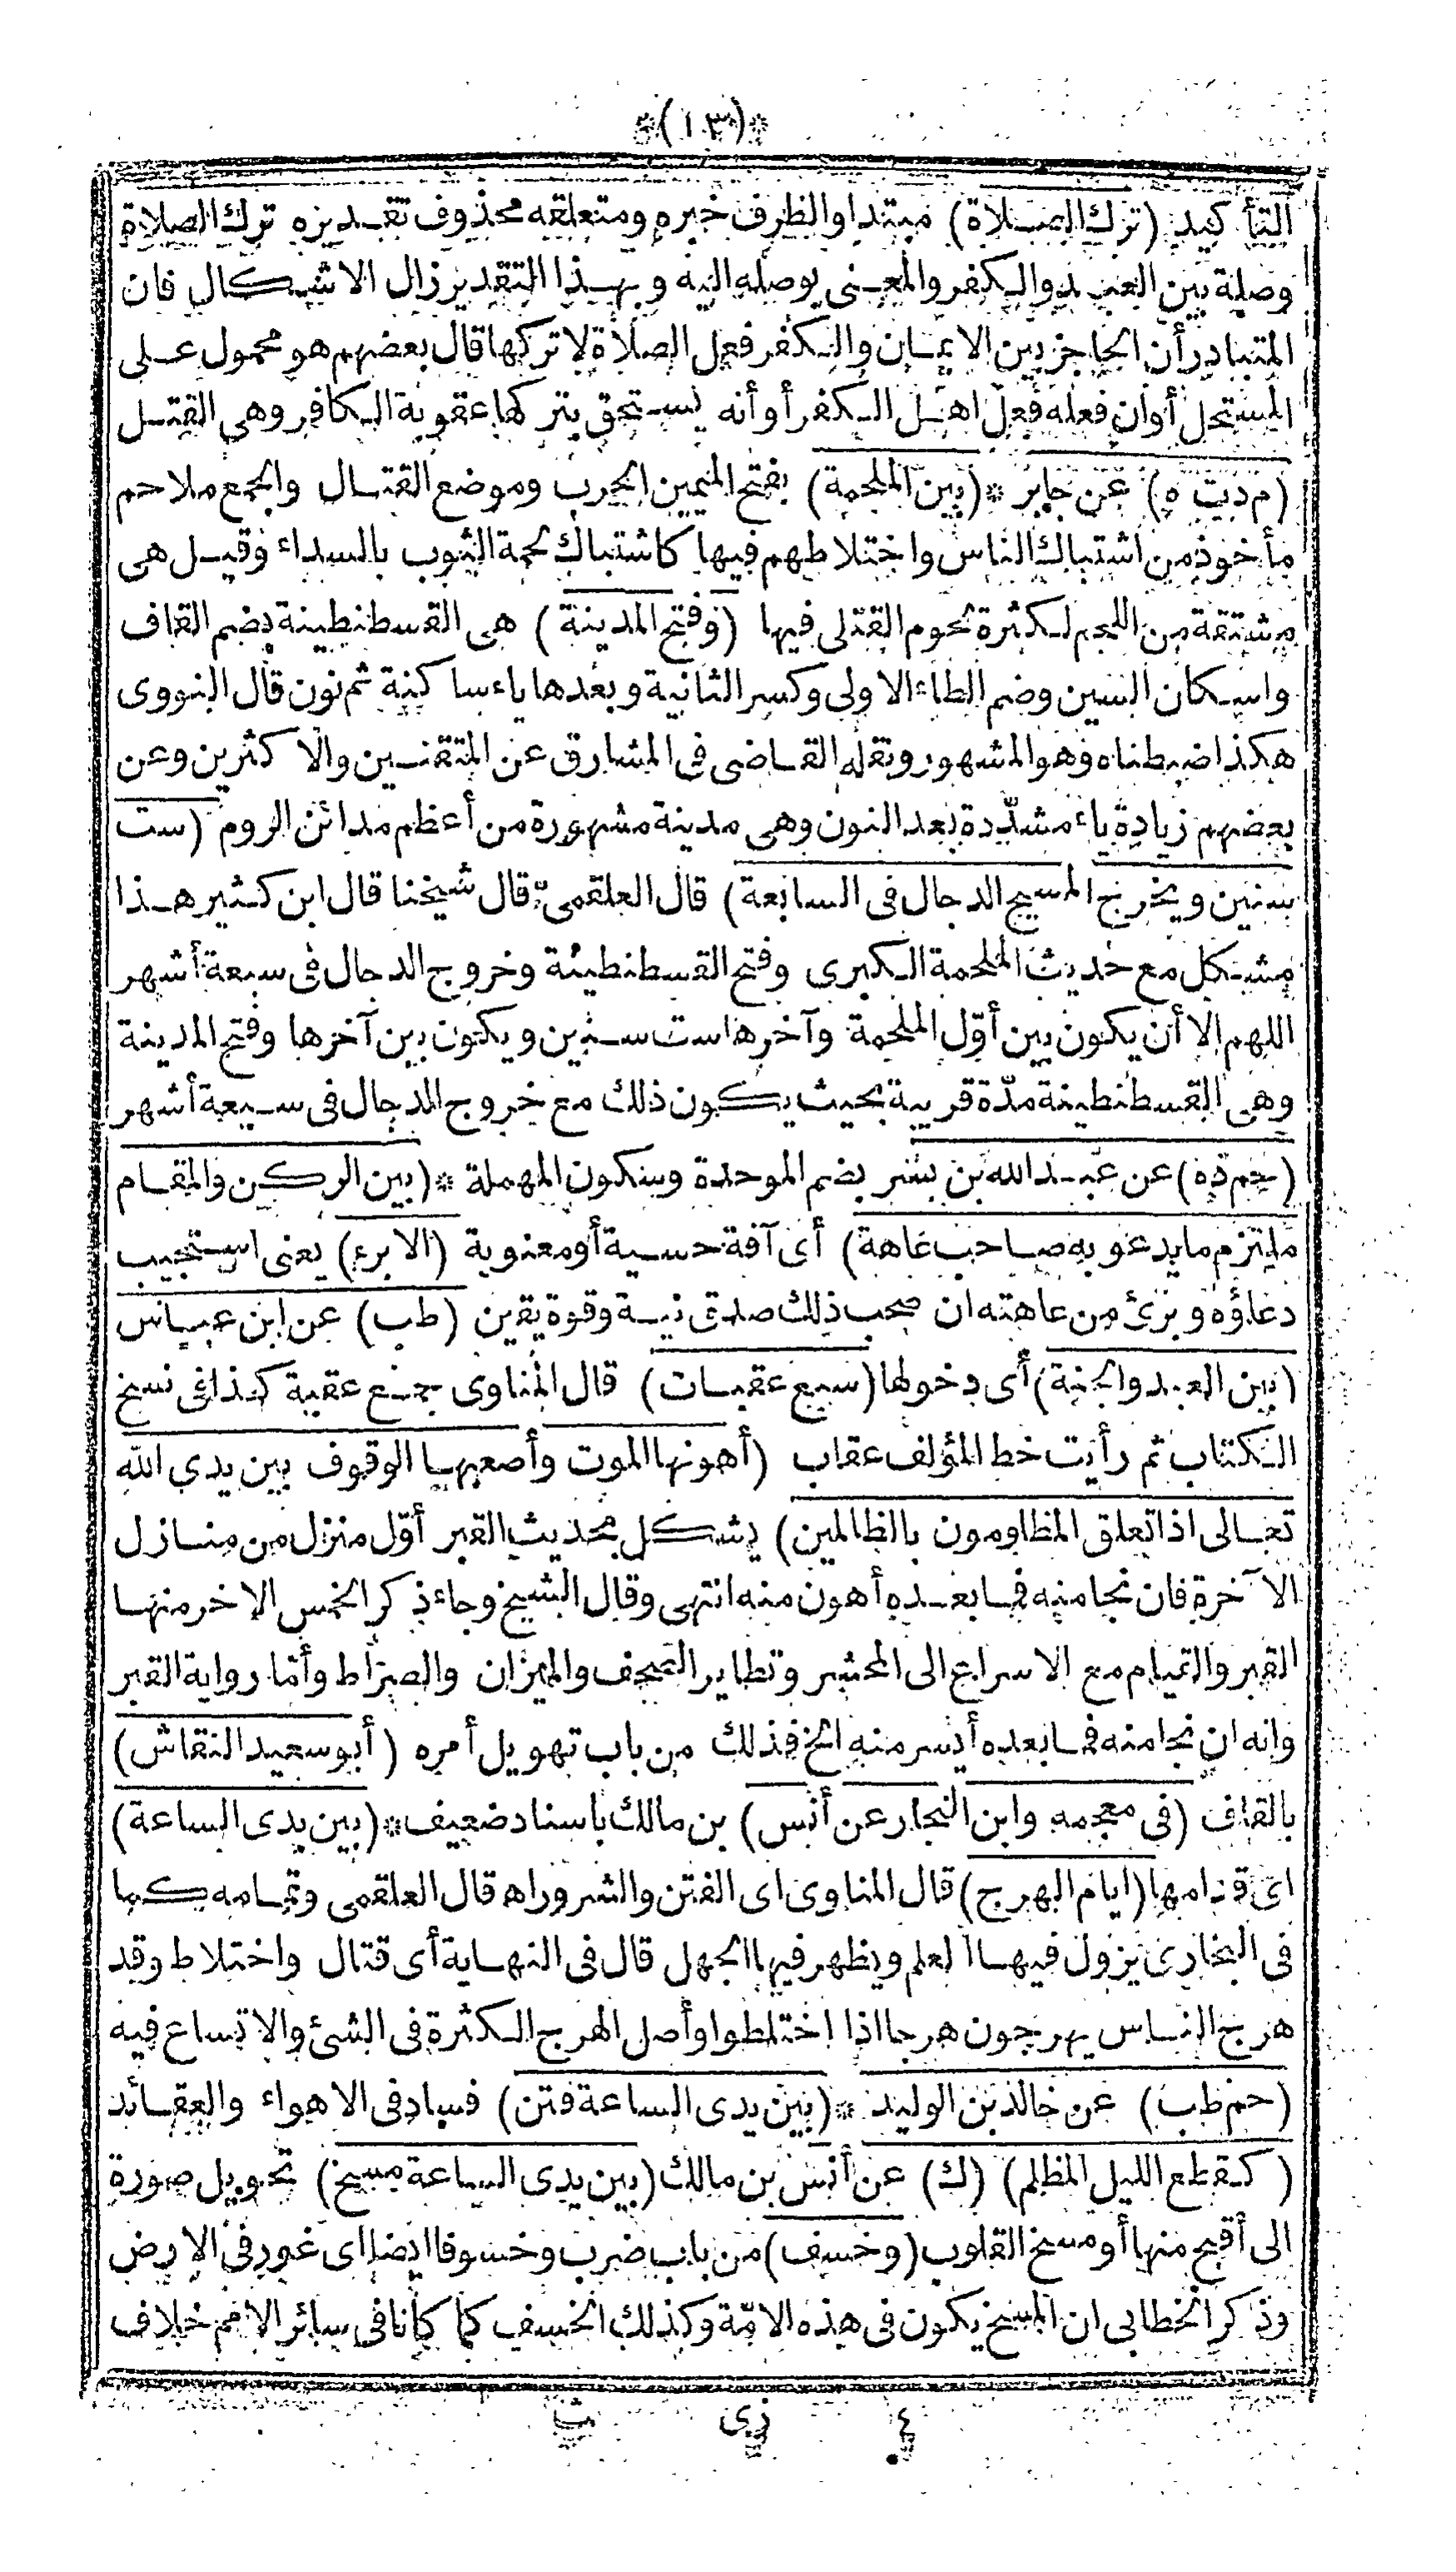 *(١٠٣)*
التأكيد (ترك الصلاة) مبتدا والظرف خبره ومتعلقه محذوف تقديره ترك الصلاة
وصلة بين العبد والكفر والمعنى يوصله اليه وبهذا التقدير زال الاشكال فان
المتبادر أن الحاجز بين الايمان والكفر فعل الصلاة لا تركها قال بعضهم هو محمول على
المستحل أوان فعله فعل اهل الكفر أو أنه يستحق بتركها عقوبة الكافر وهى القتل
(م د ت ه) عن جابر *(بين الملحمة) بفتح الميمين الحرب وموضع القتال والجمع ملاحم
مأخوذ من اشتباك الناس واختلاطهم فيها كاشتباك لحمة الثوب بالسداء وقيل هى
مشتقة من اللحم لكثرة لحوم القتلى فيها (وفتح المدينة) هى القسطنطينة بضم القاف
واسكان السين وضم الطاء الاولى وكسر الثانية وبعدها ياء ساكنة ثم نون قال النووى
هكذا ضبطناه وهو المشهور ونقله القاضى فى المشارق عن المتقنين والاكثرين وعن
بعضهم زيادة ياء مشدّدة بعد النون وهى مدينة مشهورة من أعظم مدائن الروم (ست
سنين ويخرج المسيح الدجال فى السابعة) قال العلقمىّ قال شيخنا قال ابن كثير هذا
مشكل مع حديث الملحمة الكبرى وفتح القسطنطينة وخروج الدجال فى سبعة أشهر
اللهم الا أن يكون بين أوّل الملحمة وآخرها ست سنين ويكون بين آخرها وفتح المدينة
وهى القسطنطينة مدّة قريبة بحيث يكون ذلك مع خروج الدجال فى سبعة أشهر
(حم د ه) عن عبد الله بن بسر بضم الموحدة وسكون المهملة *(بين الركن والمقام
ملتزم ما يدعو به صاحب عاهة) أى آفة حسية أو معنوية (الابرء) يعنى استجيب
دعاؤه وبرئ من عاهته ان صحب ذلك صدق نية وقوة يقين (طب) عن ابن عباس
(بين العبد والجنة) أى دخولها (سبع عقبات) قال المناوى جمع عقبة كذا فى نسخ
الكتاب ثم رأيت خط المؤلف عقاب (أهونها الموت وأصعبها الوقوف بين يدى الله
تعالى اذا تعلق المظلومون بالظالمين) يشكل بحديث القبر أوّل منزل من منازل
الآخرة فان نجا منه فما بعده أهون منه انتهى وقال الشيخ وجاء ذكر الخمس الاخر منها
القبر والقيام مع الاسراع الى المحشر وتطاير الصحف والميزان والصراط وأمّا رواية القبر
وانه ان نجا منه فما بعده أيسر منه الخ فذلك من باب تهويل أمره (أبو سعيد النقاش)
بالقاف (فى معجمه وابن النجار عن أنس) بن مالك باسناد ضعيف*(بين يدى الساعة)
اى قدامها (ايام الهرج) قال المناوى اى الفتن والشرور اه قال العلقمى وتمامه كما
فى البخارى يزول فيها العلم ويظهر فيها الجهل قال فى النهاية أى قتال واختلاط وقد
هرج الناس يهرجون هرجا اذا اختلطوا وأصل الهرج الكثرة فى الشئ والاتساع فيه
(حم طب) عن خالد بن الوليد *(بين يدى الساعة فتن) فساد فى الاهواء والعقائد
(كقطع الليل المظلم) (ك) عن أنس بن مالك (بين يدى الساعة مسخ) تحويل صورة
الى أقبح منها أو مسخ القلوب (وخسف) من باب ضرب وخسوفا ايضا اى غور فى الارض
وذكر الخطابى ان المسخ يكون فى هذه الامّة وكذلك الخسف كما كانا فى سائر الامم خلاف
٤ زى